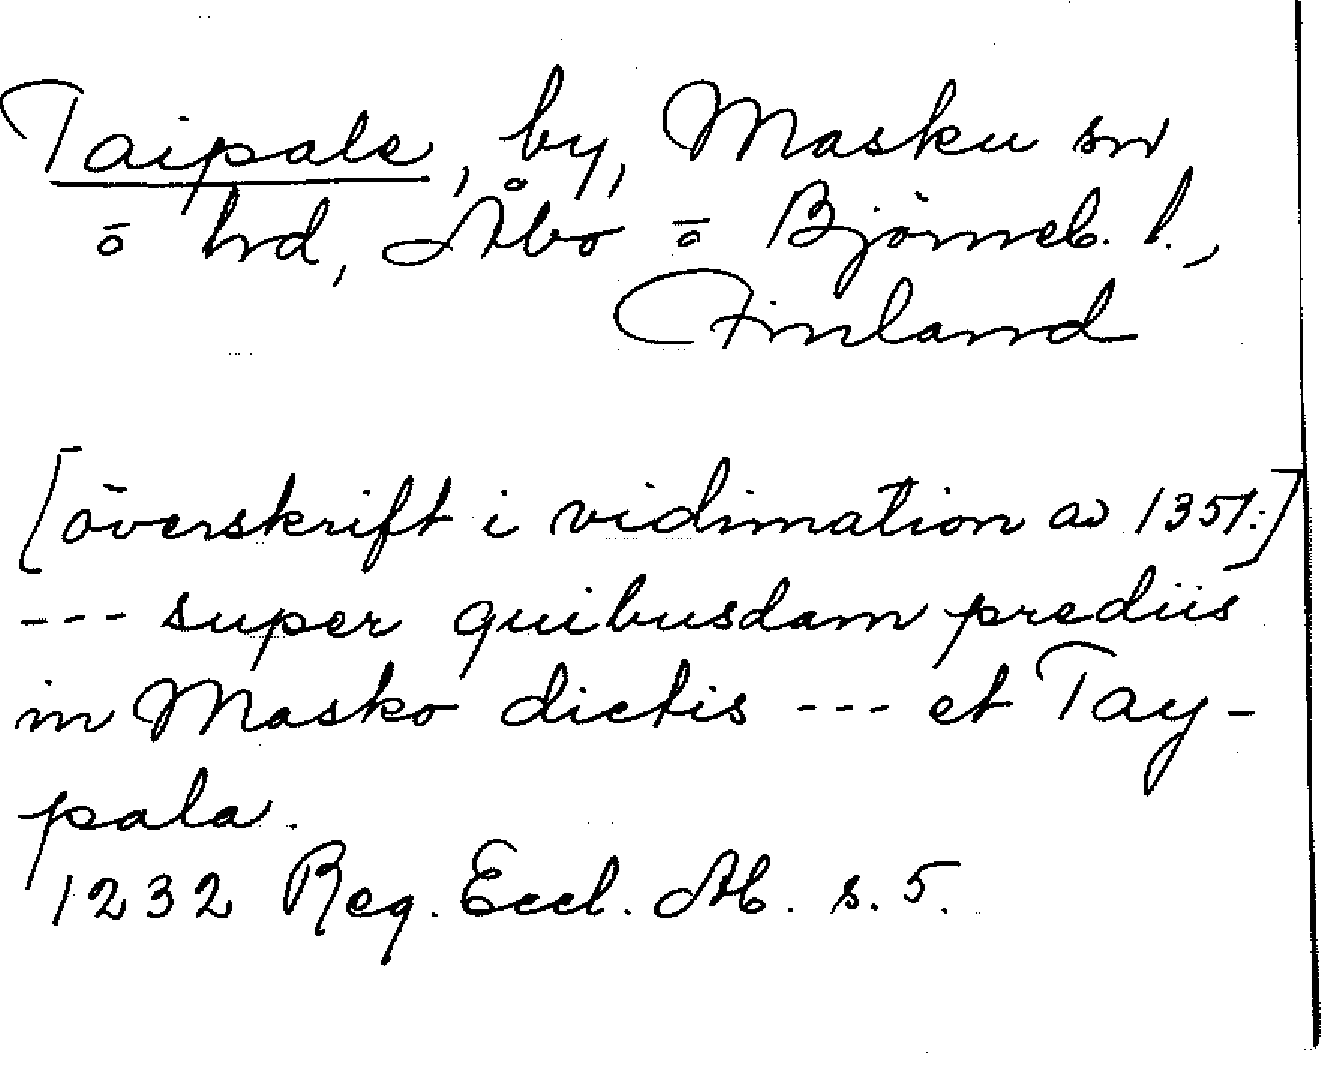 Taipale, by, Masku sn
o hd, Åbo o Björneb. l.,
Finland
[överskrift i vidimation av 1351:]
--- super quibusdam prediis
in Masko dictis --- et Tay-
pala.
1232 Reg. Eccl. Ab. s. 5.